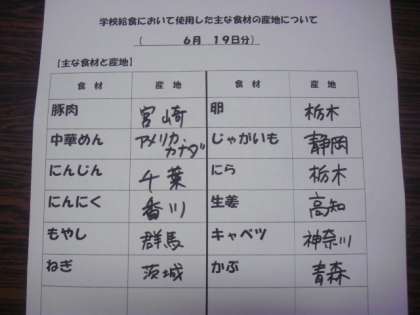 学校給食において使用した主な食材の産地について
( 6月 19日分)
【主な食材と産地】
食材 産地 食材 産地
豚肉 宮崎 卵 栃木
中華めん アメリカ・カナダ じゃがいも 静岡
にんじん 千葉 にら 栃木
にんにく 香川 生姜 高知
もやし 群馬 キャベツ 神奈川
ねぎ 茨城 かぶ 青森